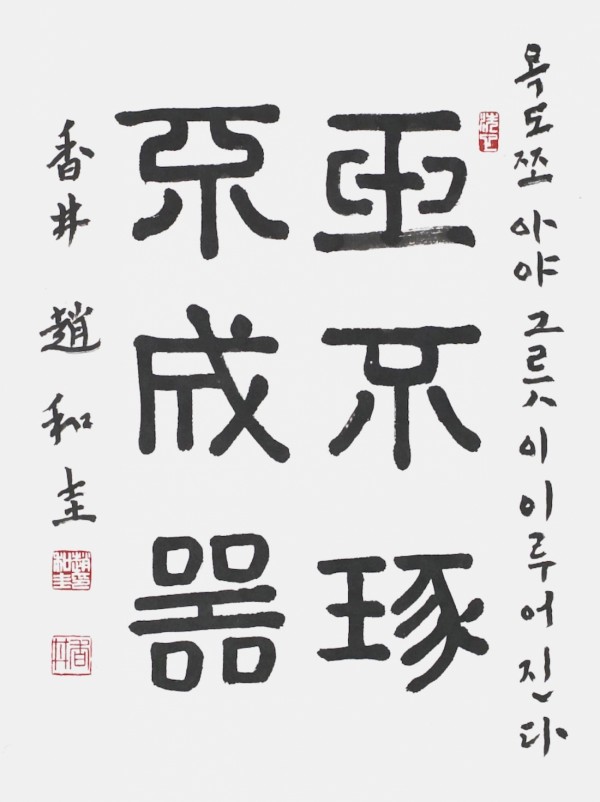 옥도 쪼아야 그릇이 이루어진다
玉不琢
不成器
香井 趙和圭
香井